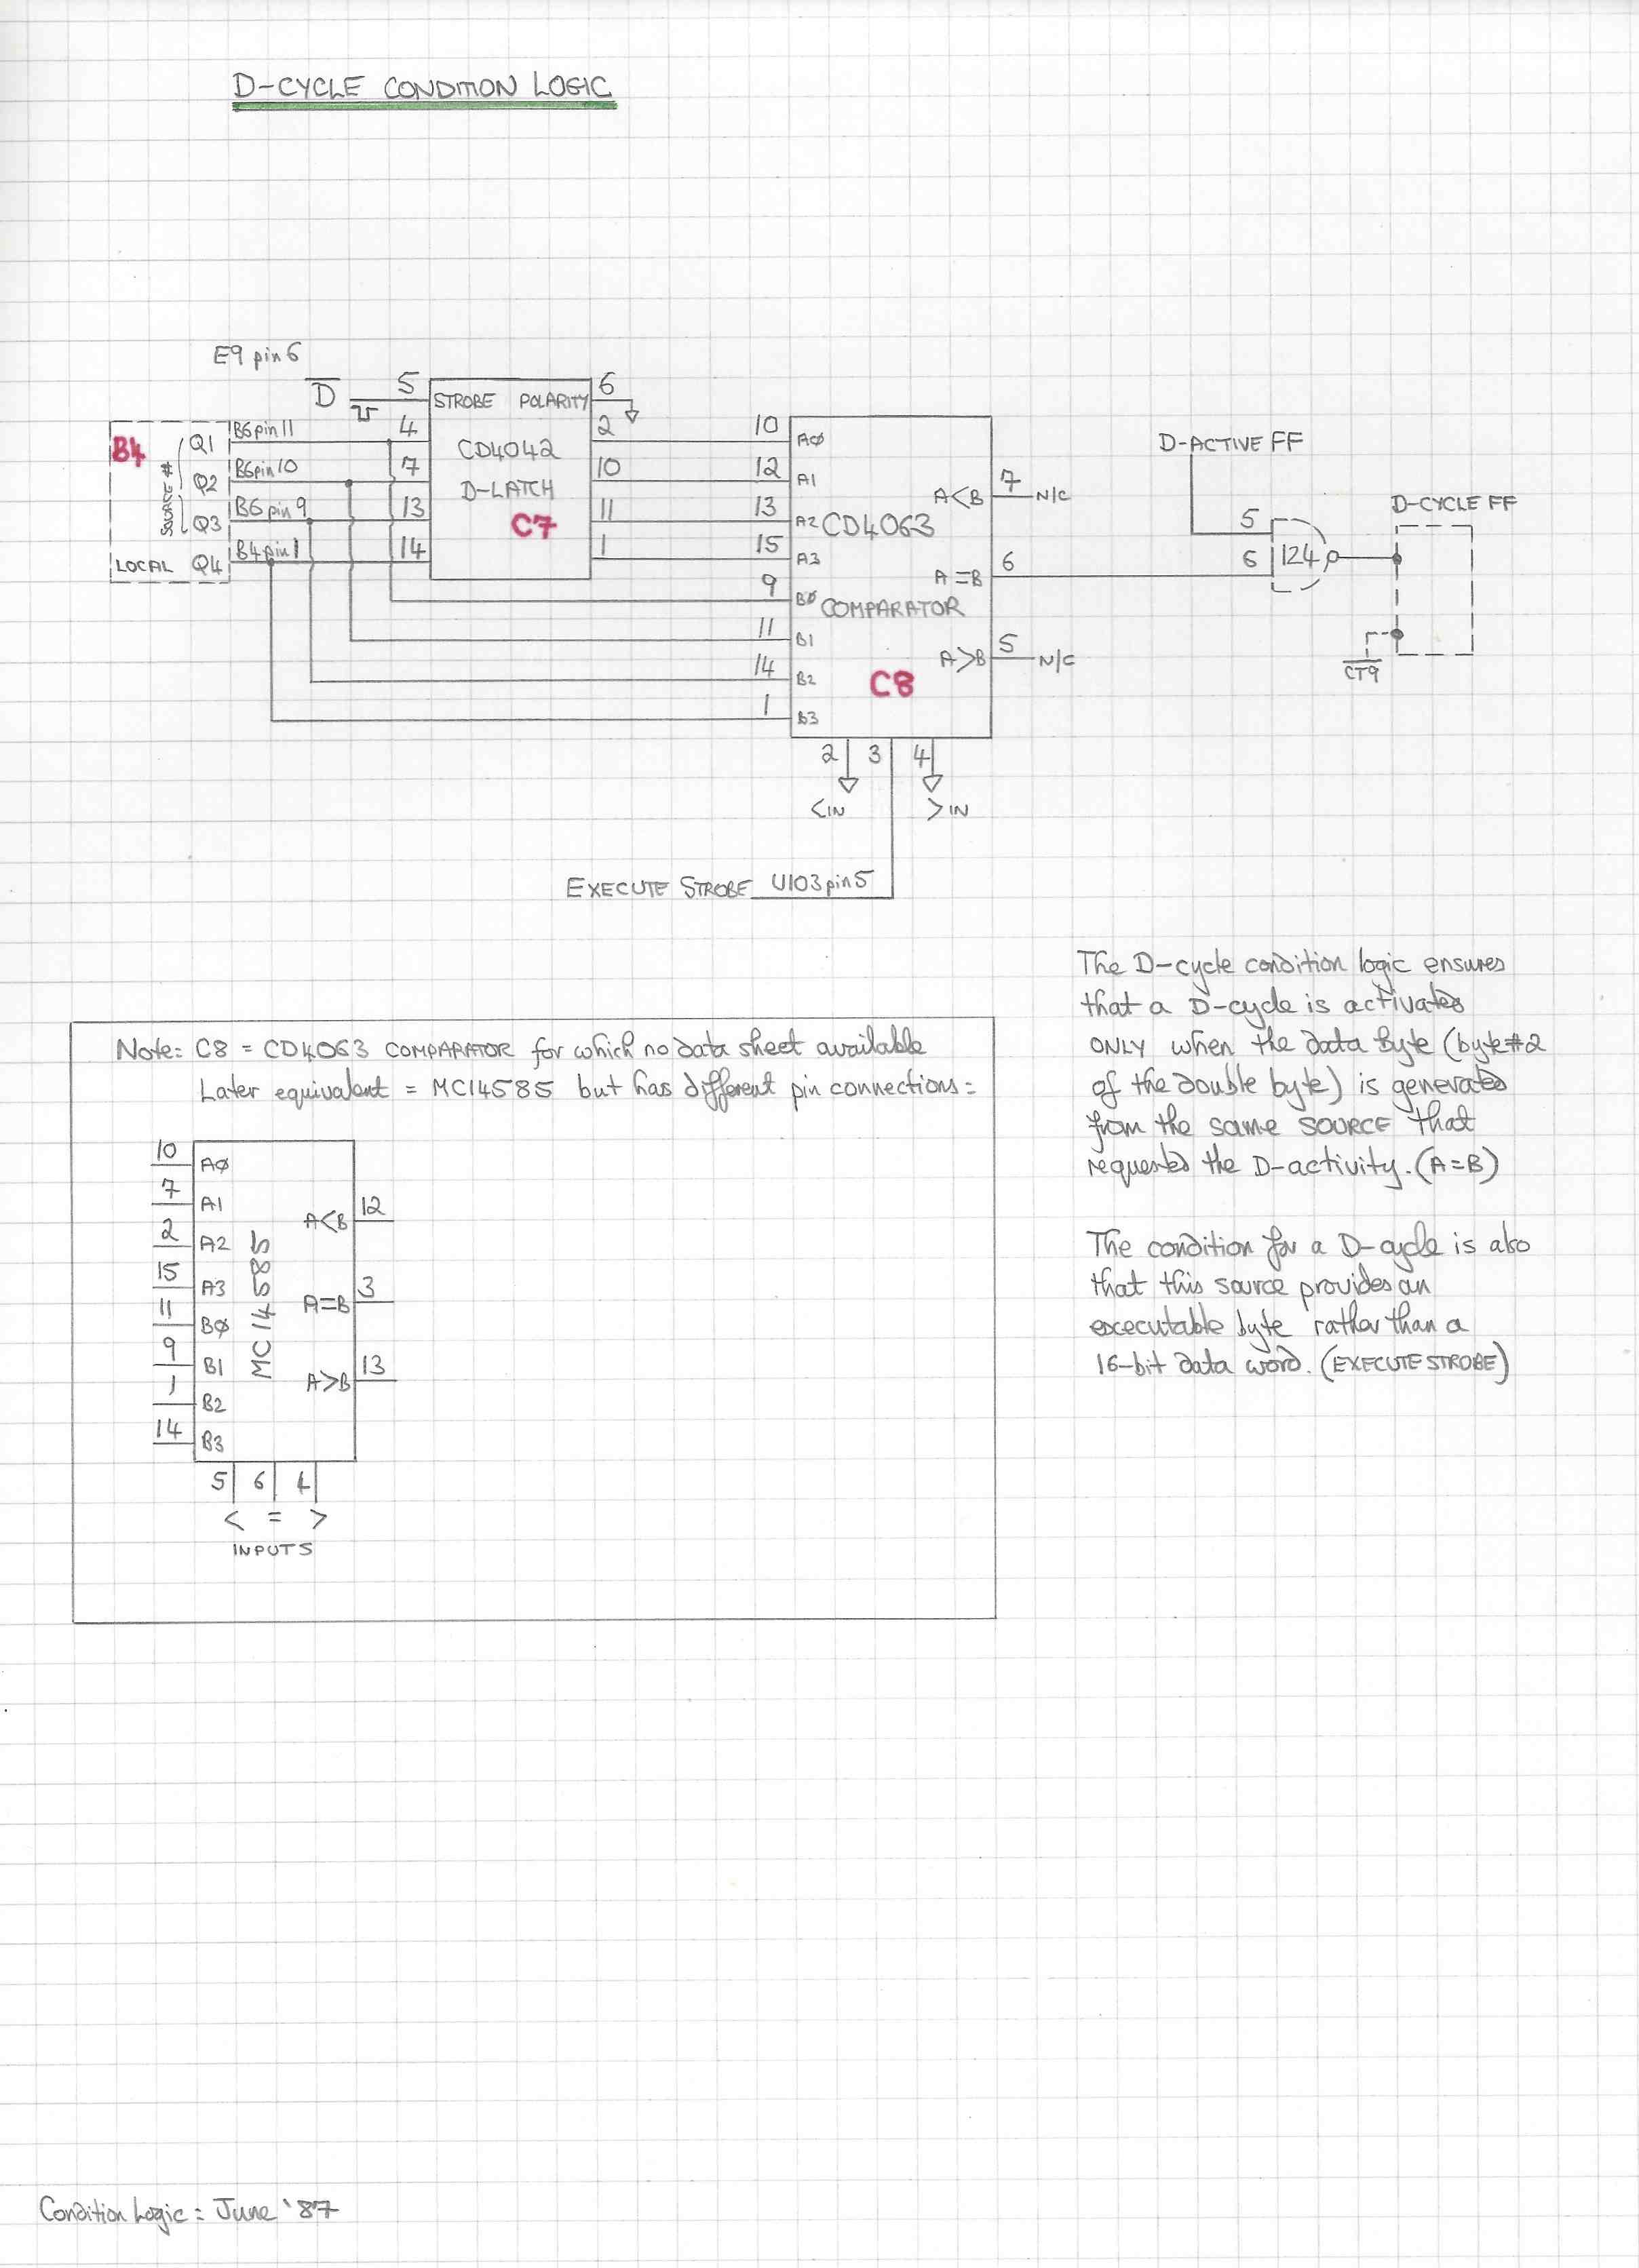 D-CYCLE CONDITION LOGIC
E9 pin 6
D 5 STROBE POLARITY 6
B4 SOURCE # LOCAL
Q1 B6pin11 4 2 10 A0
Q2 B6pin10 7 10 12 A1
Q3 B6 pin 9 13 11 13 A2
Q4 B4pin1 14 1 15 A3
CD4042
D-LATCH
C7
9 B0
11 B1
14 B2
1 B3
CD4063
COMPARATOR
C8
A<B 7 N/C
A=B 6
A>B 5 N/C
2 3 4
<IN >IN
EXECUTE STROBE U103pin5
D-ACTIVE FF
D-CYCLE FF
5
6 124
CT9
The D-cycle condition logic ensures
that a D-cycle is activated
ONLY when the data byte (byte#2
of the double byte) is generated
from the same SOURCE that
requested the D-activity. (A=B)
The condition for a D-cycle is also
that this source provides an
excecutable byte rather than a
16-bit data word. (EXECUTE STROBE)
Note: C8 = CD4063 COMPARATOR for which no data sheet available
Later equivalent = MC14585 but has different pin connections:
10 A0
7 A1
2 A2
15 A3
11 B0
9 B1
1 B2
14 B3
MC14585
A<B 12
A=B 3
A>B 13
5 6 4
< = >
INPUTS
Condition Logic: June '87